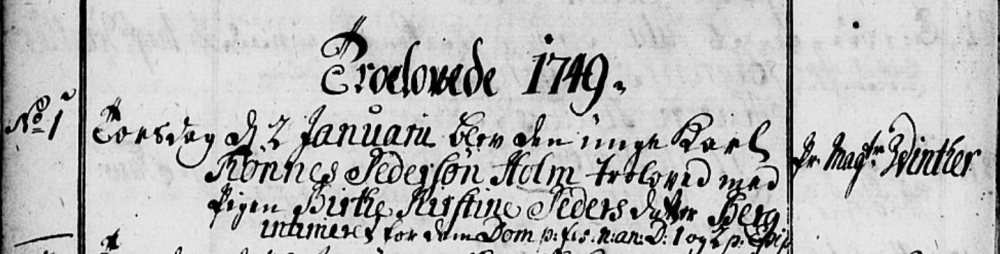 Troelovede 1749.
No 1
Torsdag d. 2 Januarii blev den unge Karl
Rønnes Pedersøn Holm troloved med
Pigen Birthe Kirstine Peders datter Berg
intimeret for dem Dom p: fes. n: an: D: 1 og 2 p. Epip
Pr Magr Winther